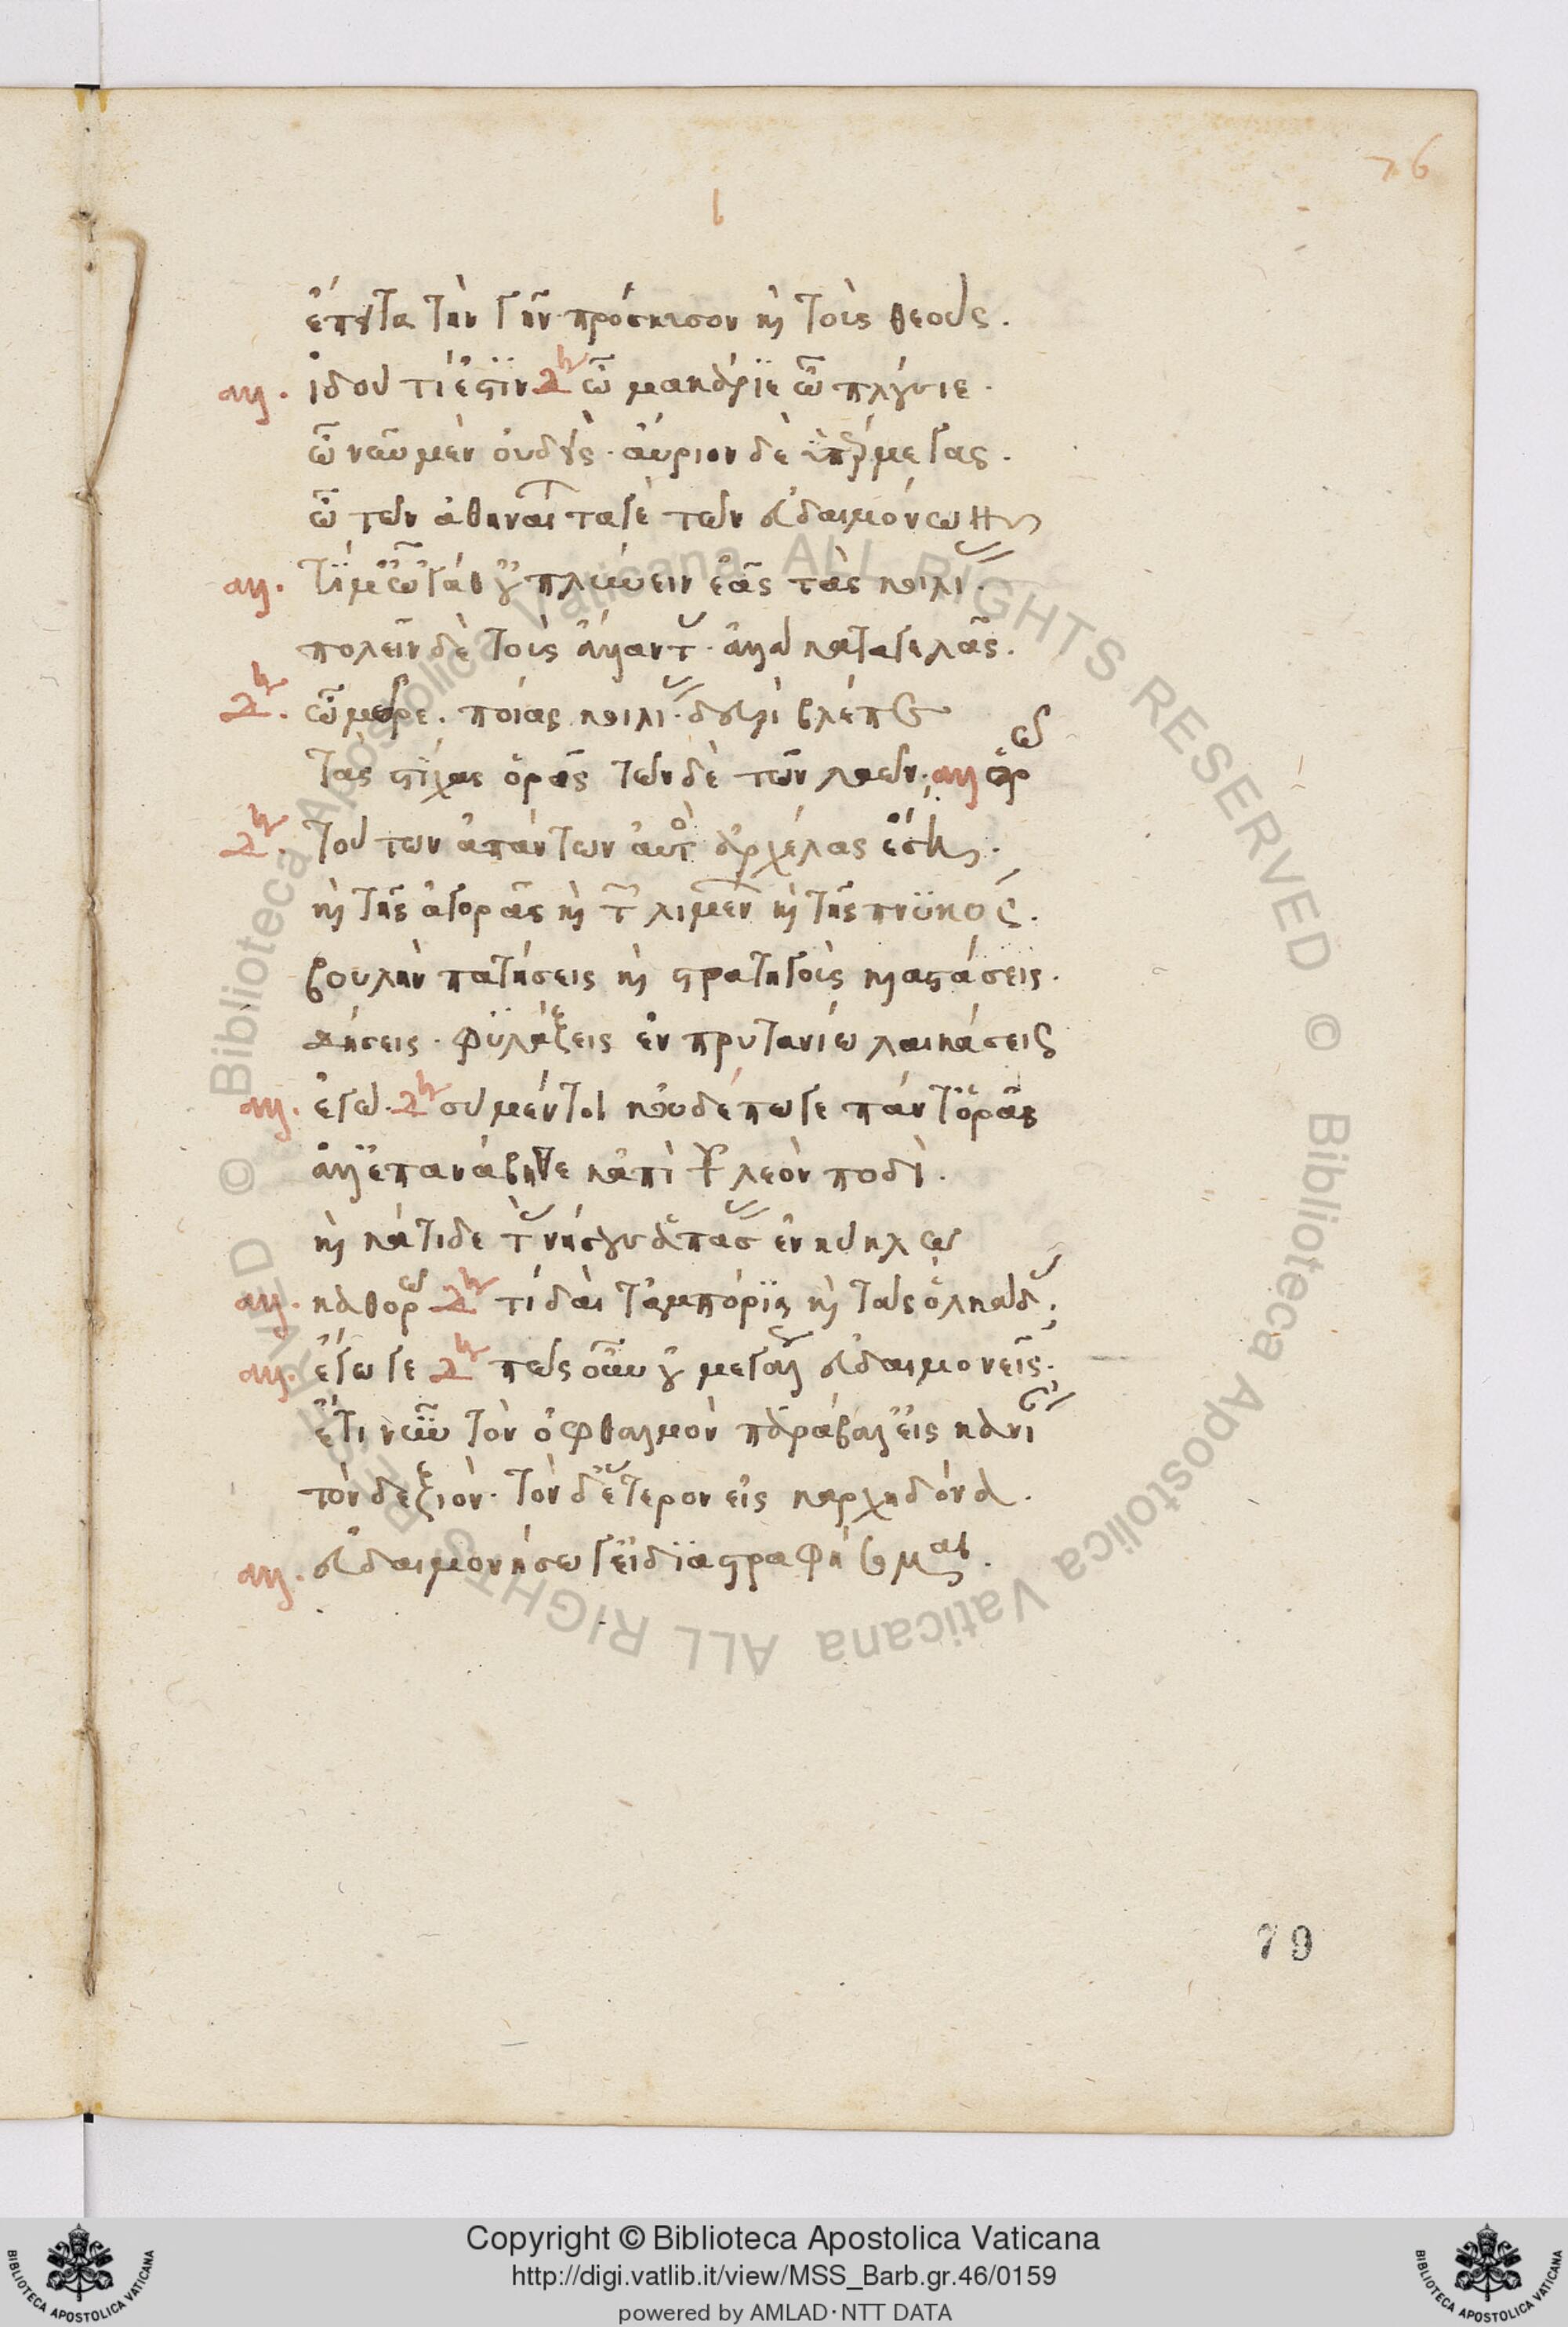 76
ἔπειτα τὴν γῆν πρόσκυσον καὶ τοὺς θεούς.
αλ. ἰδοὺ τί ἔστιν δη ὦ μακάριε ὦ πλούσιε.
ὦ νῦν μὲν οὐδεὶς. αὔριον δὲ ὑπέρμεγας.
ὦ τῶν ἀθηναίων ταγὲ τῶν εὐδαιμόνων
αλ. τί μ' ὦγάθ' οὐ πλύνειν ἐᾶς τὰς κοιλίας
πωλεῖν δὲ τοὺς ἀλλᾶντας. ἀλλὰ καταγελᾶς.
δη. ὦ μῶρε. ποίας κοιλίας. δευρὶ βλέπε
τὰς στίχας ὁρᾶς τῶνδε τῶν λαῶν; αλ ὁρῶ
δη. τούτων ἁπάντων αὐτὸς ἀρχέλας ἔσῃ.
καὶ τῆς ἀγορᾶς καὶ τῶν λιμένων καὶ τῆς πνυκός.
βουλὴν πατήσεις καὶ στρατηγοὺς κλαστάσεις.
δήσεις. φυλάξεις ἐν πρυτανίω λαικάσεις
αλ. ἐγώ. δη σὺ μέντοι κοὐδέπω γε πάνθ' ὁρᾶς
ἀλλ' ἐπανάβηθι κἀπὶ τοὐλεὸν τοδί.
καὶ κάτιδε τὰς νήσους ἁπάσας ἐν κύκλῳ
αλ. καθορῶ δη τί δαὶ τἀμπόρια καὶ τὰς ὁλκάδας;
αλ. ἔγωγε δη πῶς οὖν οὐ μεγάλως εὐδαιμονεῖς;
ἔτι νῦν τὸν ὀφθαλμὸν παράβαλλ' εἰς καρίαν
τὸν δεξιὸν. τὸν δ' ἕτερον εἰς καρχηδόνα.
αλ. εὐδαιμονήσω γ' εἰ διαστραφήσομαι.
79
Copyright © Biblioteca Apostolica Vaticana
http://digi.vatlib.it/view/MSS_Barb.gr.46/0159
powered by AMLAD·NTT DATA